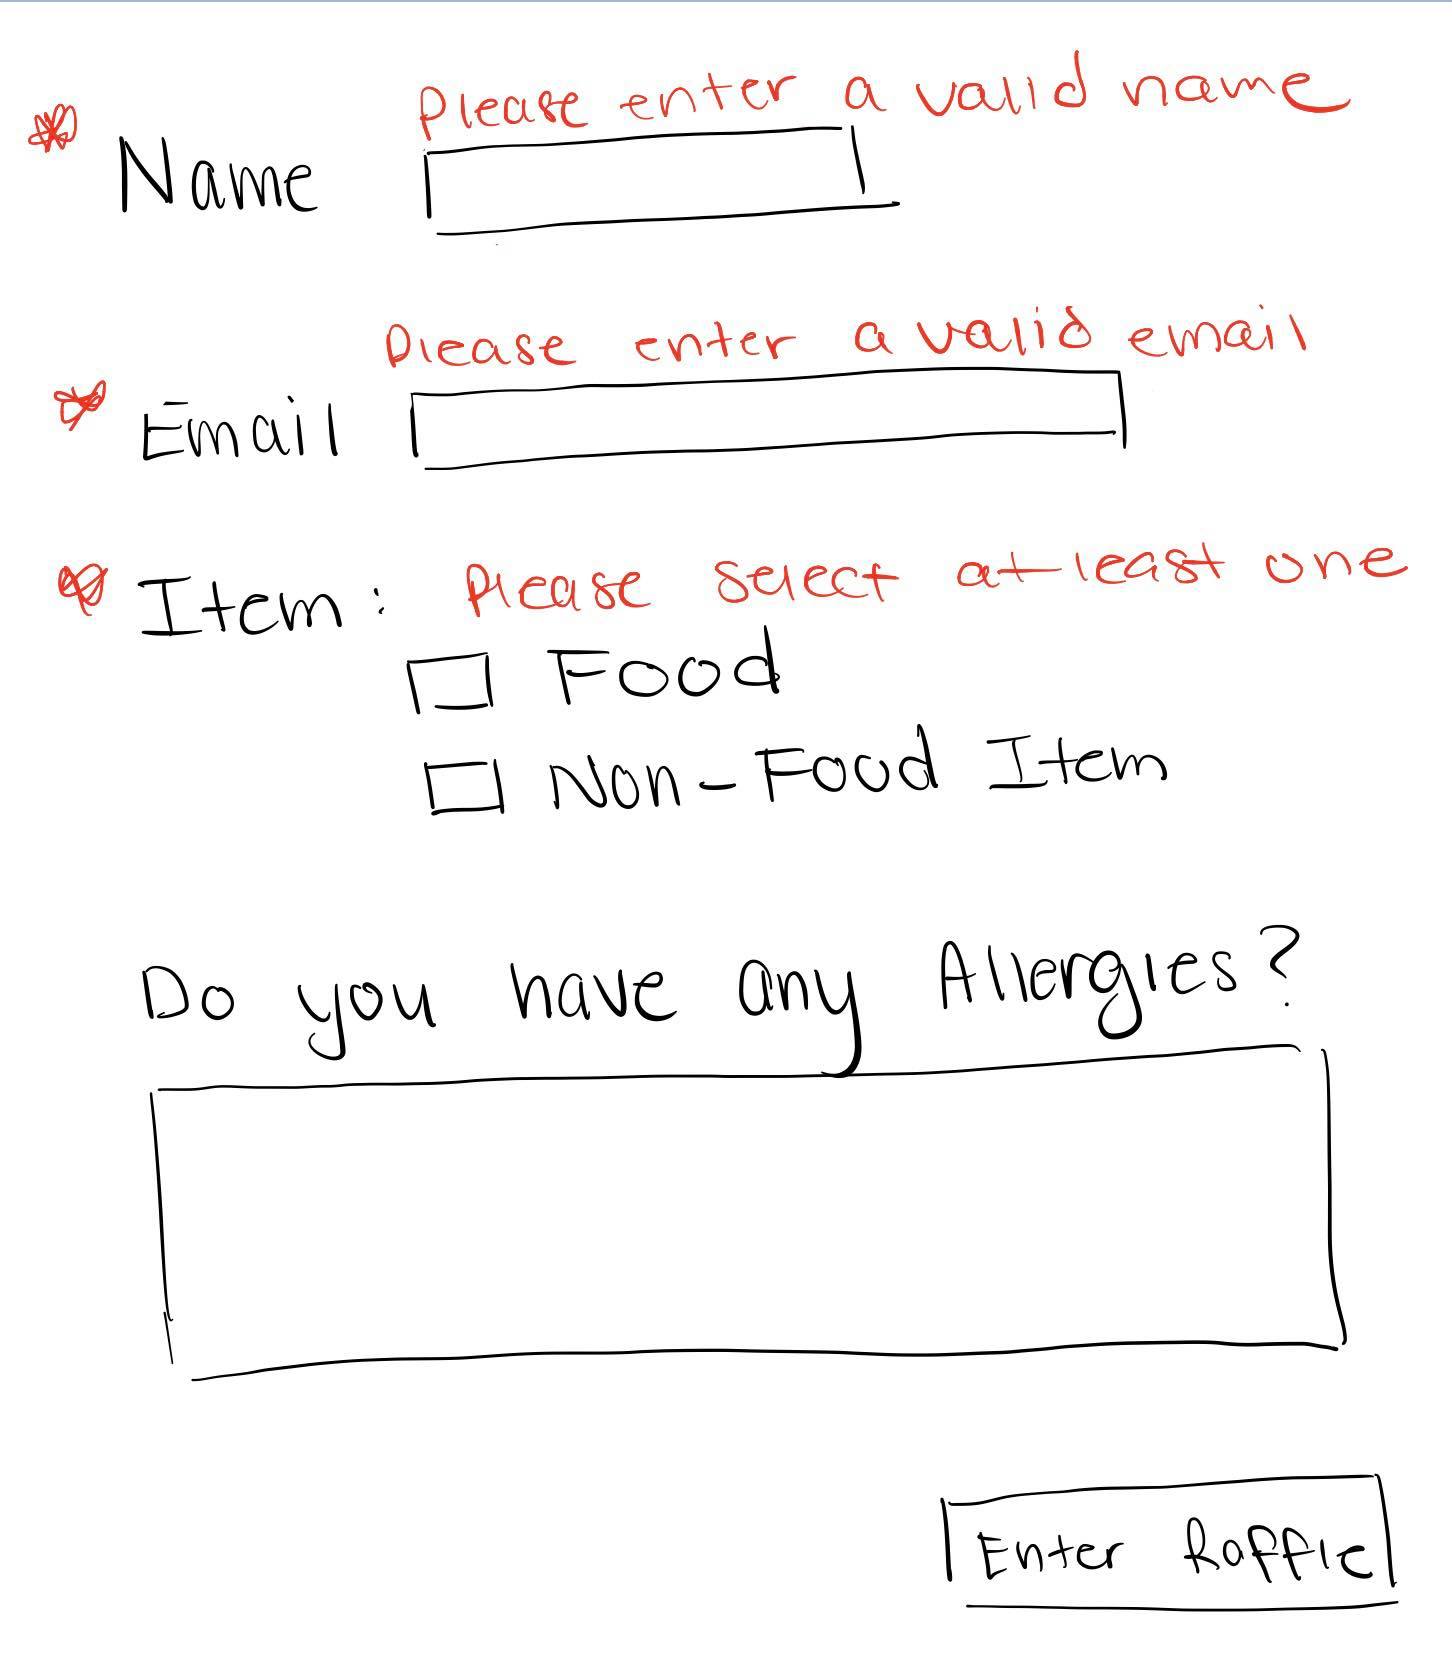 Please enter a valid name
* Name
Please enter a valid email
* Email
* Item: Please select at least one
Food
Non-Food Item
Do you have any Allergies?
Enter Raffle